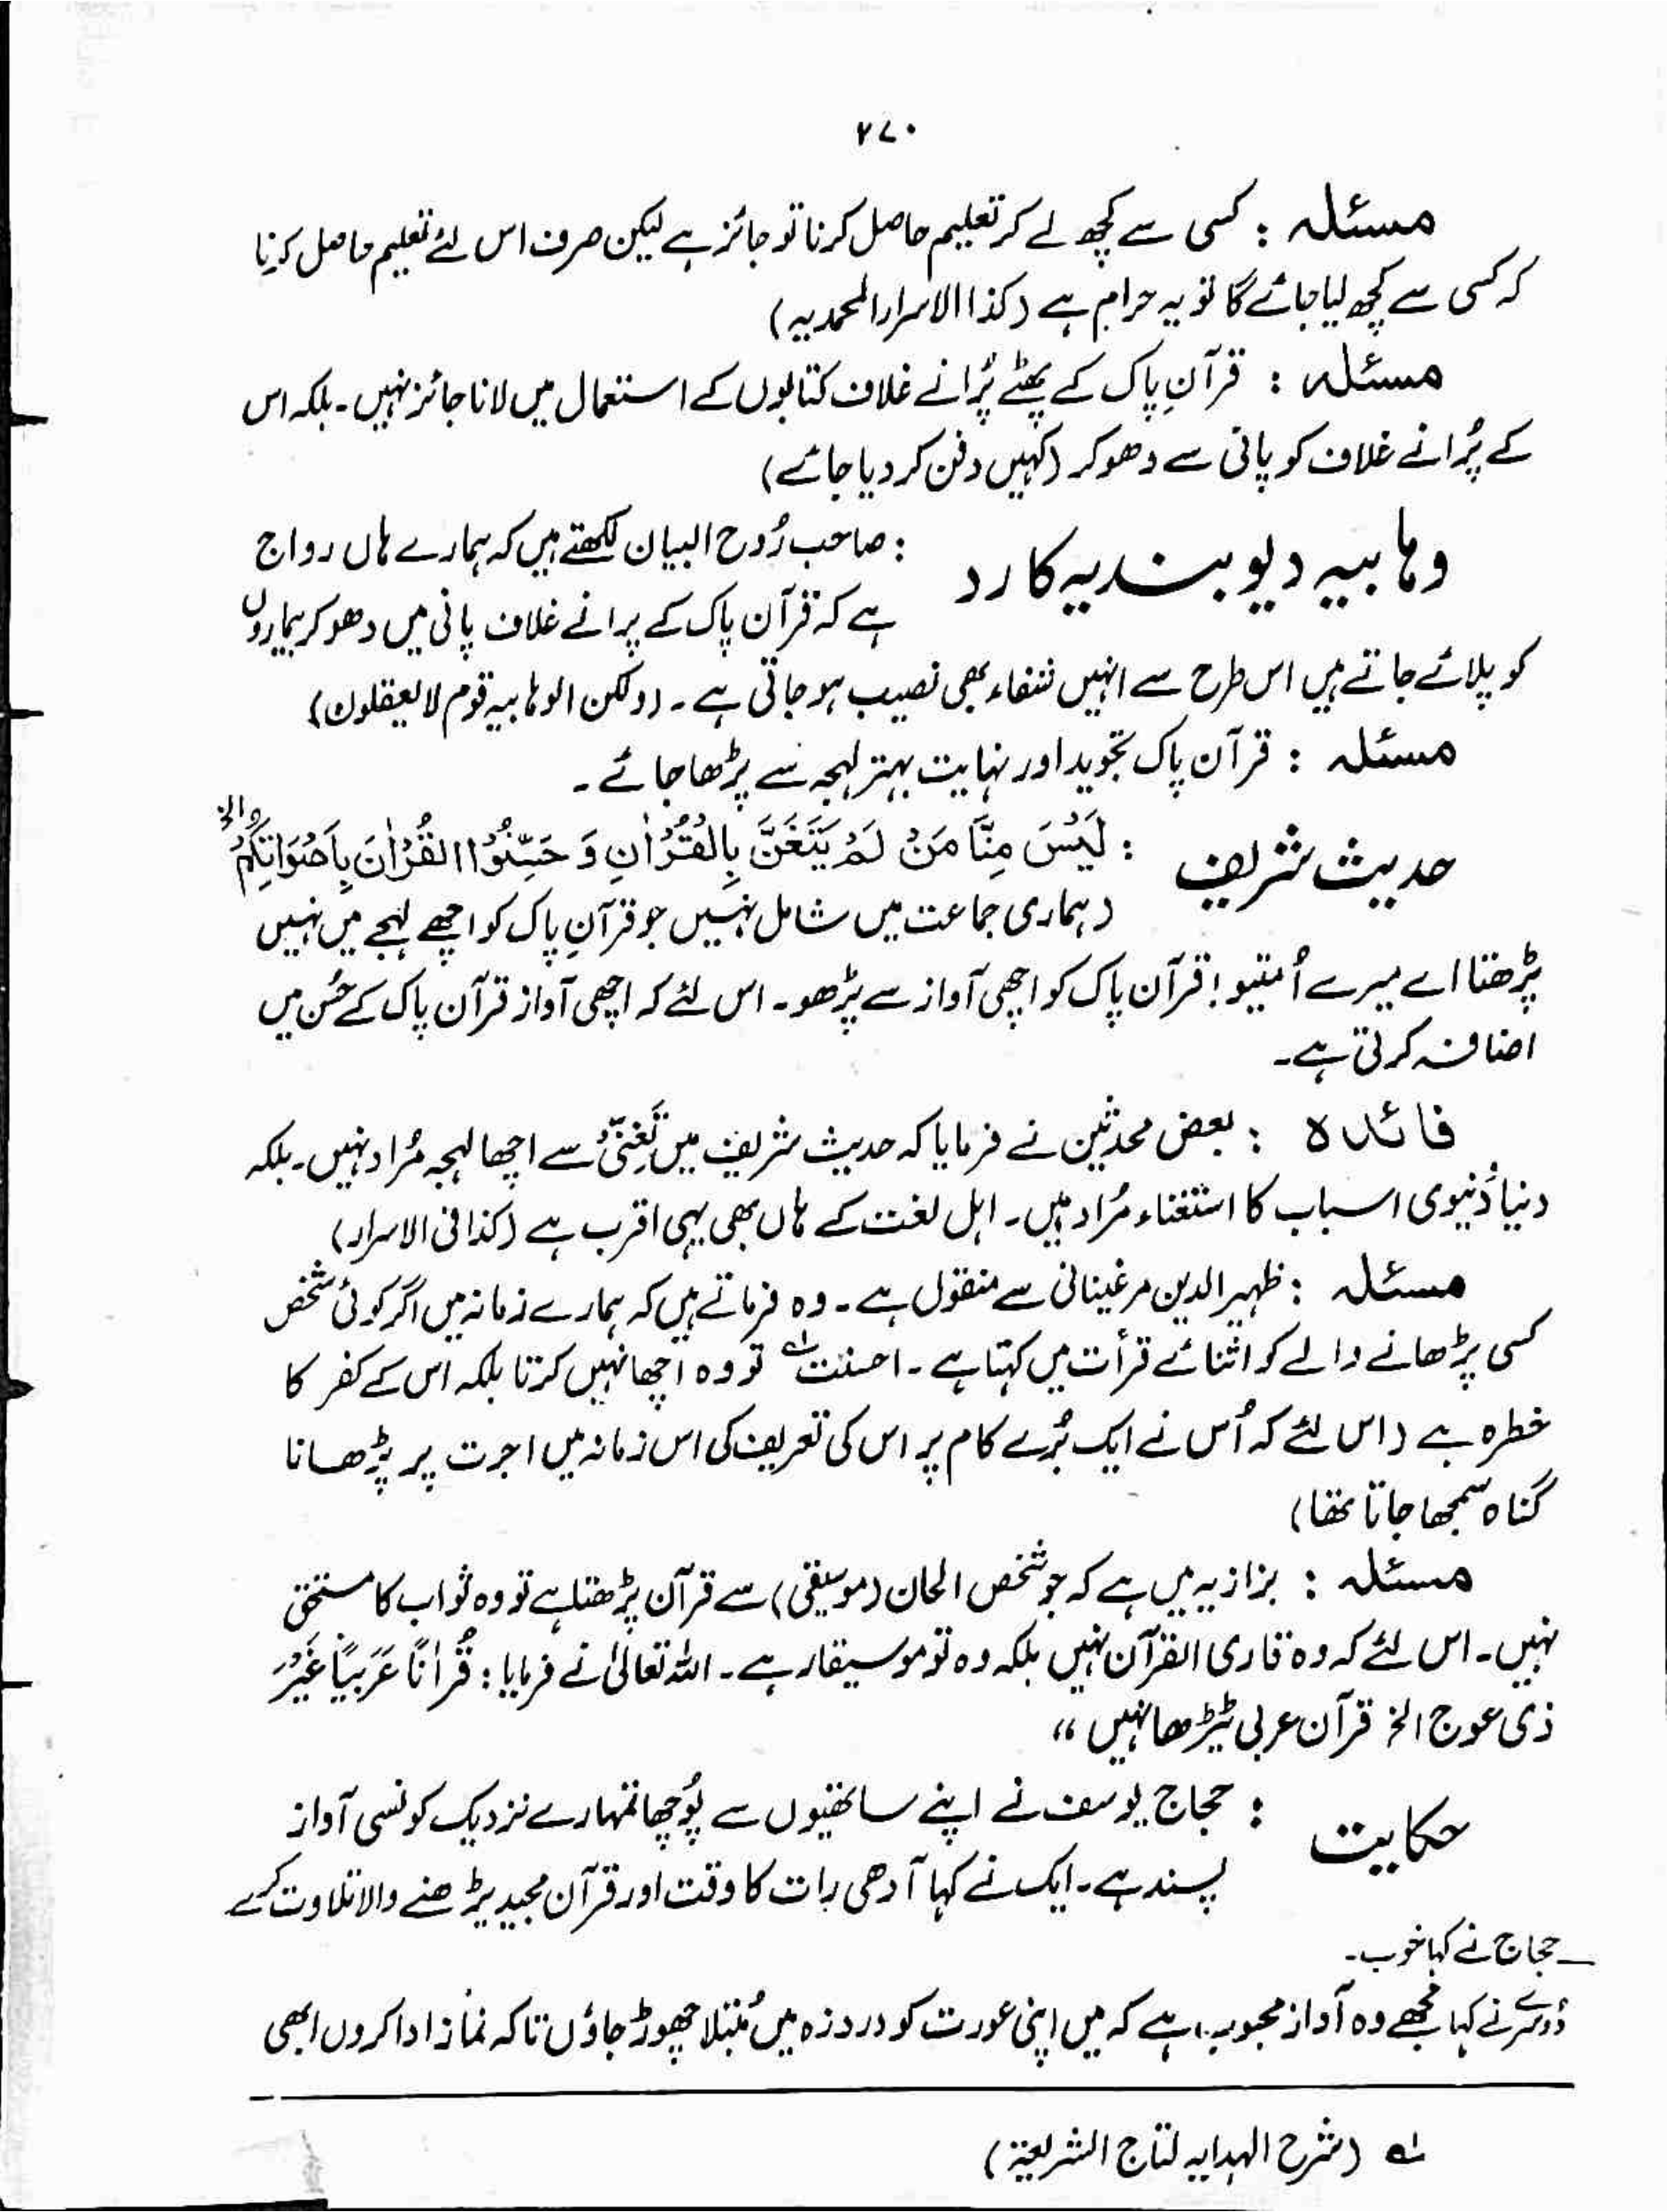 ۲۷۰
مسئلہ : کسی سے کچھ لے کر تعلیم حاصل کرنا تو جائز ہے لیکن صرف اس لئے تعلیم حاصل کرنا
کہ کسی سے کچھ لیا جائے گا تو یہ حرام ہے (کذا الاسرار المحمدیہ)
مسئلہ : قرآنِ پاک کے پھٹے پُرانے غلاف کتابوں کے استعمال میں لانا جائز نہیں۔ بلکہ اس
کے پُرانے غلاف کو پانی سے دھو کر (کہیں دفن کر دیا جائے)
وہابیہ دیوبندیہ کا رد : صاحب رُوح البیان لکھتے ہیں کہ ہمارے ہاں رواج
ہے کہ قرآن پاک کے پرانے غلاف پانی میں دھو کر بیماروں
کو پلائے جاتے ہیں اس طرح سے انہیں شفاء بھی نصیب ہو جاتی ہے۔ (ولکن الوہابیہ قوم لا یعقلون)
مسئلہ : قرآن پاک تجوید اور نہایت بہتر لہجہ سے پڑھا جائے ۔
حدیث شریف : لَیْسَ مِنَّا مَنْ لَمْ یَتَغَنَّ بِالْقُرْاٰنِ وَ حَسِّنُوْا الْقُرْاٰنَ بِاَصْوَاتِکُمْ والخ
(ہماری جماعت میں شامل نہیں جو قرآنِ پاک کو اچھے لہجے میں نہیں
پڑھتا اے میرے اُمتیو! قرآن پاک کو اچھی آواز سے پڑھو۔ اس لئے کہ اچھی آواز قرآن پاک کے حُسن میں
اضافہ کرتی ہے۔
فائدہ : بعض محدثین نے فرمایا کہ حدیث شریف میں تَغَنِّیْ سے اچھا لہجہ مُراد نہیں۔ بلکہ
دنیا دُنیوی اسباب کا استغناء مُراد ہیں۔ اہل لغت کے ہاں بھی یہی اقرب ہے (کذا فی الاسرار)
مسئلہ : ظہیر الدین مرغینانی سے منقول ہے۔ وہ فرماتے ہیں کہ ہمارے زمانہ میں اگر کوئی شخص
کسی پڑھانے والے کو اثنائے قرأت میں کہتا ہے۔ احسنت ؎۱ تو وہ اچھا نہیں کرتا بلکہ اس کے کفر کا
خطرہ ہے (اس لئے کہ اُس نے ایک بُرے کام پر اس کی تعریف کی اس زمانہ میں اجرت پر پڑھانا
گناہ سمجھا جاتا تھا)
مسئلہ : بزازیہ میں ہے کہ جو شخص الحان (موسیقی) سے قرآن پڑھتا ہے تو وہ ثواب کا مستحق
نہیں۔ اس لئے کہ وہ قاری القرآن نہیں بلکہ وہ تو موسیقار ہے۔ اللہ تعالیٰ نے فرمایا : قُرْاٰنًا عَرَبِیًّا غَیْرَ
ذی عوج الخ قرآن عربی ٹیڑھا نہیں ،،
حکایت : حجاج یوسف نے اپنے ساتھیوں سے پُوچھا تمہارے نزدیک کونسی آواز
پسند ہے۔ ایک نے کہا آدھی رات کا وقت اور قرآن مجید پڑھنے والا تلاوت کرے
ـ حجاج نے کہا خوب۔
دُوسرے نے کہا مجھے وہ آواز محبوب ہے کہ میں اپنی عورت کو دردِ زہ میں مُبتلا چھوڑ جاؤں تاکہ نماز ادا کروں ابھی
؎۱ (شرح الہدایہ لتاج الشریعۃ)